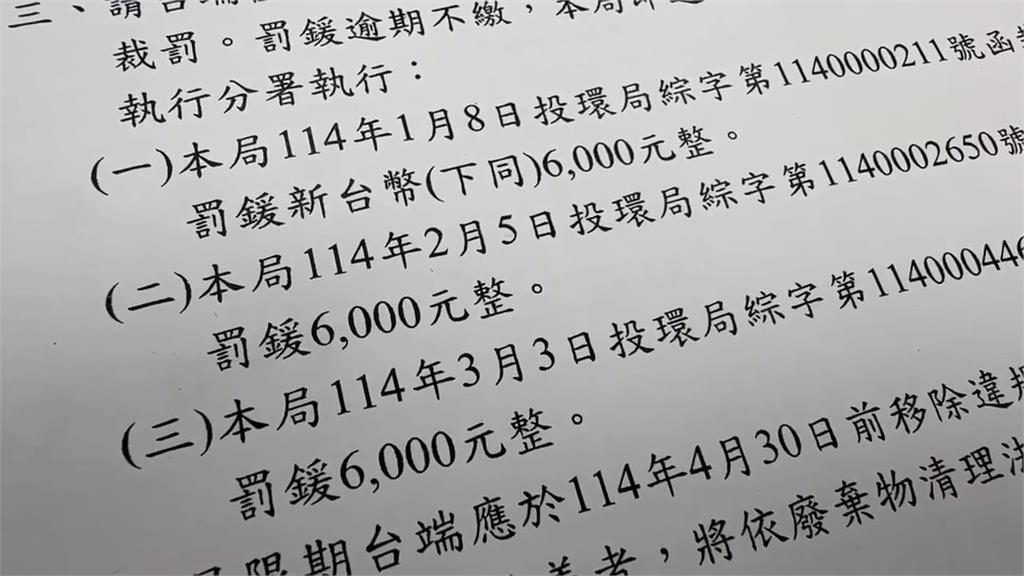 三、請台端
裁罰。罰鍰逾期不繳，本局即
執行分署執行：
(一)本局114年1月8日投環局綜字第1140000211號函
罰鍰新台幣(下同)6,000元整。
(二)本局114年2月5日投環局綜字第1140002650號
罰鍰6,000元整。
(三)本局114年3月3日投環局綜字第114000446
罰鍰6,000元整。
限期台端應於114年4月30日前移除違規
善者，將依廢棄物清理法